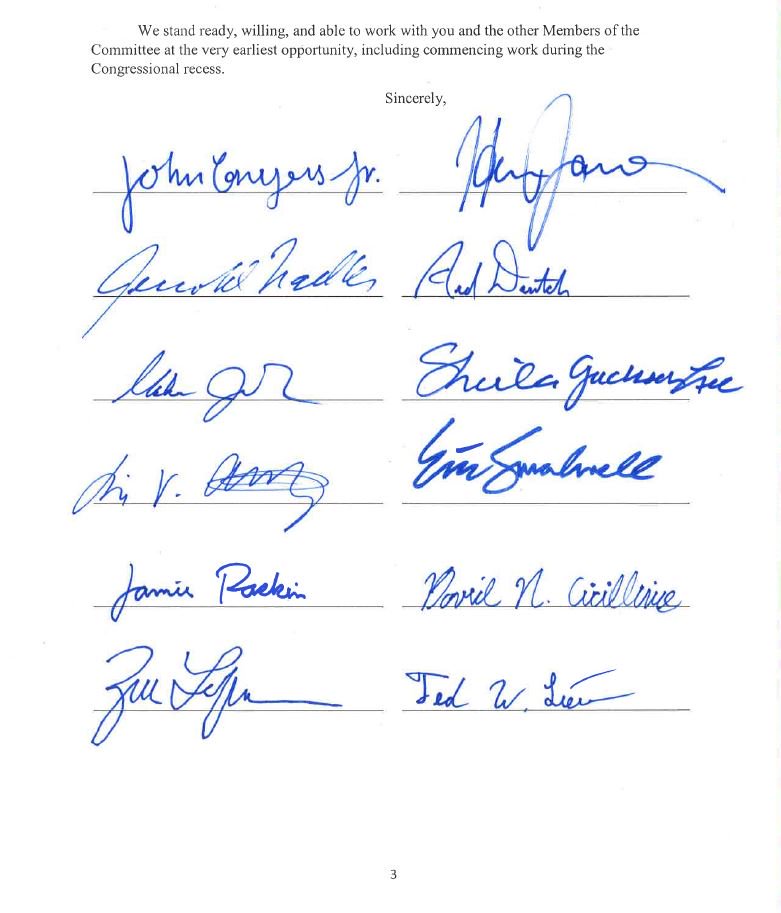 We stand ready, willing, and able to work with you and the other Members of the
Committee at the very earliest opportunity, including commencing work during the
Congressional recess.
Sincerely,
John Conyers Jr.
Jerrold Nadler Ted Deutch
Sheila Jackson Lee
V. Eric Swalwell
Jamie Raskin David N. Cicilline
Zoe Lofgren Ted W. Lieu
3